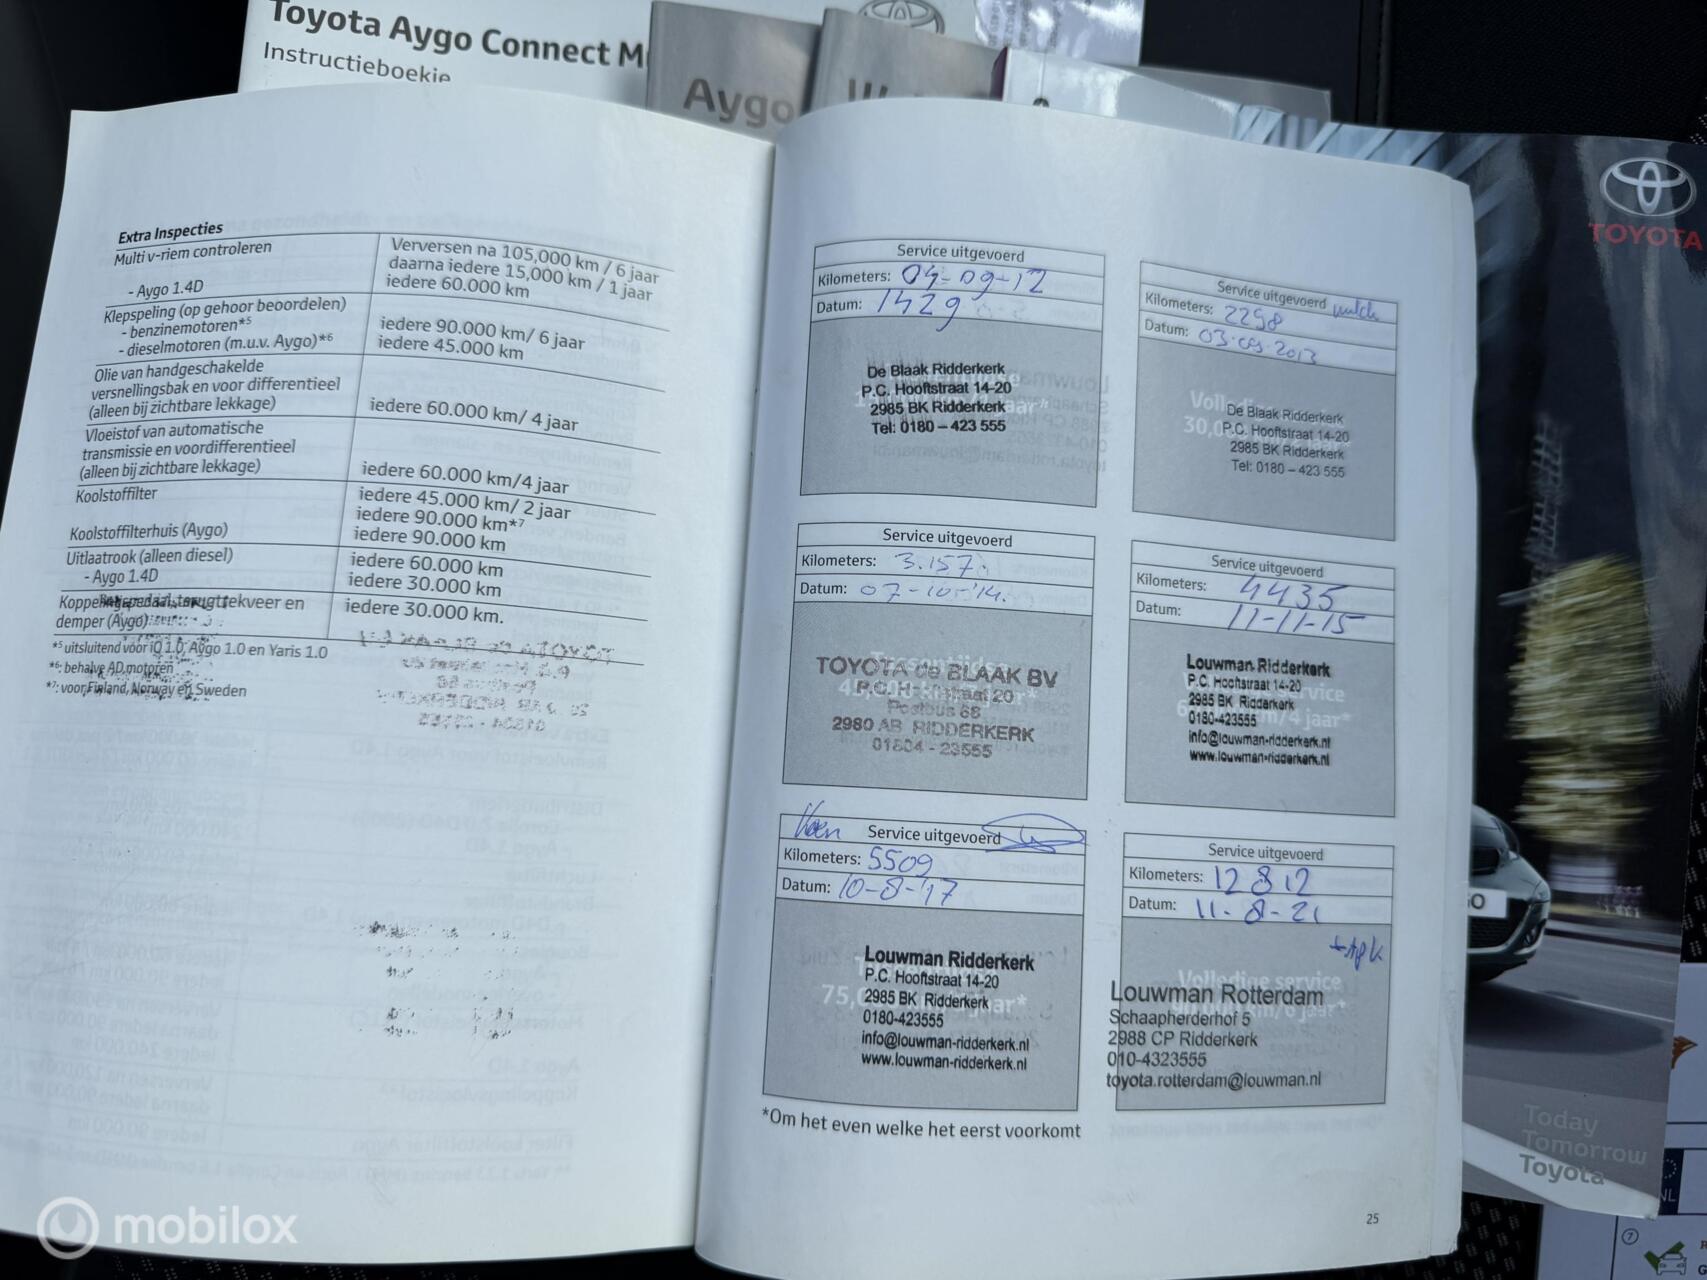 Toyota Aygo Connect
Instructieboekje
Aygo
TOYOTA
Extra Inspecties
Multi v-riem controleren
- Aygo 1.4D
Verversen na 105,000 km / 6 jaar
daarna iedere 15,000 km / 1 jaar
iedere 60.000 km
Klepspeling (op gehoor beoordelen)
- benzinemotoren*5
- dieselmotoren (m.u.v. Aygo)*6
iedere 90.000 km/ 6 jaar
iedere 45.000 km
Olie van handgeschakelde
versnellingsbak en voor differentieel
(alleen bij zichtbare lekkage)
iedere 60.000 km/ 4 jaar
Vloeistof van automatische
transmissie en voordifferentieel
(alleen bij zichtbare lekkage)
iedere 60.000 km/4 jaar
Koolstoffilter
iedere 45.000 km/ 2 jaar
iedere 90.000 km*7
Koolstoffilterhuis (Aygo)
iedere 90.000 km
Uitlaatrook (alleen diesel)
- Aygo 1.4D
iedere 60.000 km
iedere 30.000 km
Koppelingspedaal terugtrekveer en
demper (Aygo)
iedere 30.000 km.
*5 uitsluitend voor iQ 1.0, Aygo 1.0 en Yaris 1.0
*6: behalve AD motoren
*7: voor Finland, Norway en Sweden
Service uitgevoerd
Kilometers: 04-09-12
Datum: 1429
De Blaak Ridderkerk
P.C. Hooftstraat 14-20
2985 BK Ridderkerk
Tel: 0180 – 423 555
Service uitgevoerd
Kilometers: 2298
Datum: 03.09.2013
Volledige
30,0
De Blaak Ridderkerk
P.C. Hooftstraat 14-20
2985 BK Ridderkerk
Tel: 0180 – 423 555
Service uitgevoerd
Kilometers: 3.157.
Datum: 07-10-'14.
TOYOTA de BLAAK BV
Postbus 68
2980 AB RIDDERKERK
01804 - 23555
Service uitgevoerd
Kilometers: 4435
Datum: 11-11-15
Louwman Ridderkerk
P.C. Hooftstraat 14-20
2985 BK Ridderkerk
0180-423555
info@louwman-ridderkerk.nl
www.louwman-ridderkerk.nl
Service uitgevoerd
Kilometers: 5509
Datum: 10-8-'17
Louwman Ridderkerk
P.C. Hooftstraat 14-20
2985 BK Ridderkerk
0180-423555
info@louwman-ridderkerk.nl
www.louwman-ridderkerk.nl
Service uitgevoerd
Kilometers: 12812
Datum: 11-8-21
+apk
Volledige service
Louwman Rotterdam
Schaapherderhof 5
2988 CP Ridderkerk
010-4323555
toyota.rotterdam@louwman.nl
*Om het even welke het eerst voorkomt
25
Today
Tomorrow
Toyota
NL
mobilox